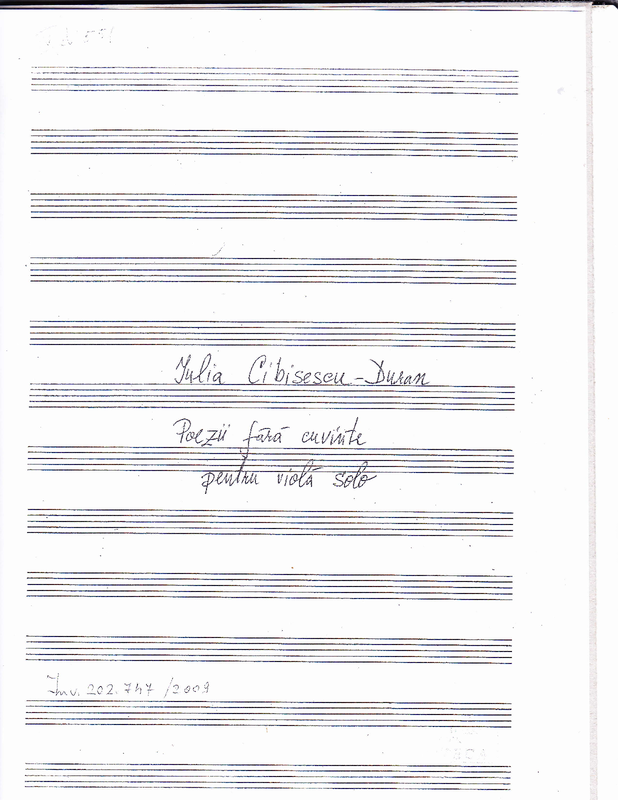 Iulia Cibisescu-Duran
Poezii fără cuvinte
pentru violă solo
Inv. 202.747 /2009